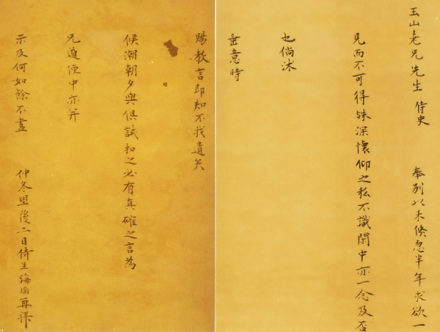 玉山老兄先生 侍史
奉別以来倏忽半年求欲一
見而不可得殊深懷仰之私不識閣中亦一念及否
也倘沐
垂意時
賜教言即知不我遺矣
候潮朝夕與俱試和之必有真確之言為
兄道便中亦幷
示及何如餘不盡
仲冬望後二日侍生